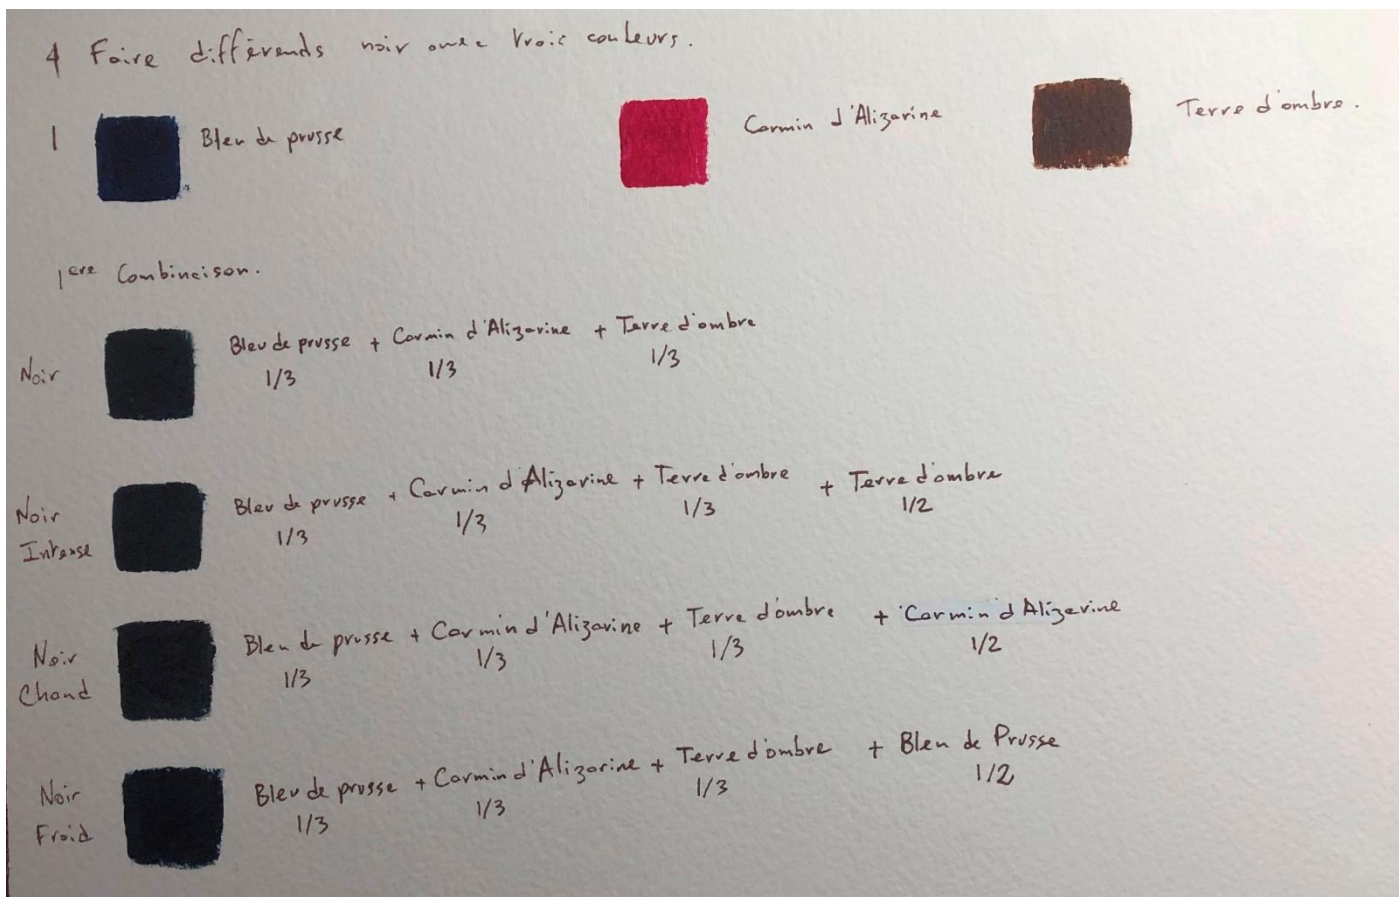 4 Faire différends noir avec trois couleurs.
1 Bleu de prusse Carmin d'Alizarine Terre d'ombre.
1ere Combinaison.
Noir Bleu de prusse + Carmin d'Alizarine + Terre d'ombre
1/3 1/3 1/3
Noir Intense Bleu de prusse + Carmin d'Alizarine + Terre d'ombre + Terre d'ombre
1/3 1/3 1/3 1/2
Noir Chaud Bleu de prusse + Carmin d'Alizarine + Terre d'ombre + Carmin d'Alizarine
1/3 1/3 1/3 1/2
Noir Froid Bleu de prusse + Carmin d'Alizarine + Terre d'ombre + Bleu de Prusse
1/3 1/3 1/3 1/2